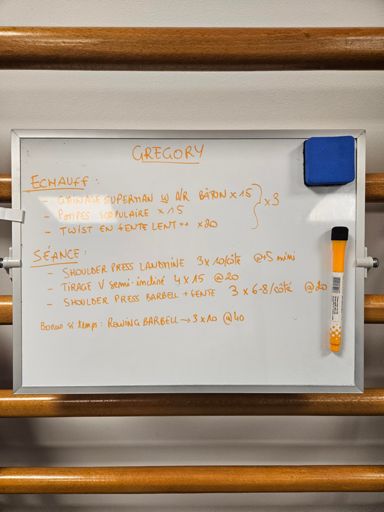 GREGORY
ECHAUFF :
- GAINAGE SUPERMAN A/R BÂTON x 15 } x3
- POMPES SCAPULAIRE x 15
- TWIST EN FENTE LENT++ x20
SÉANCE :
- SHOULDER PRESS LANDMINE 3x10/côté @+5 mini
- TIRAGE V semi-incliné 4 x 15 @20
- SHOULDER PRESS BARBELL + FENTE 3 x 6-8/côté @20
Bonus si temps : ROWING BARBELL → 3 x 10 @40